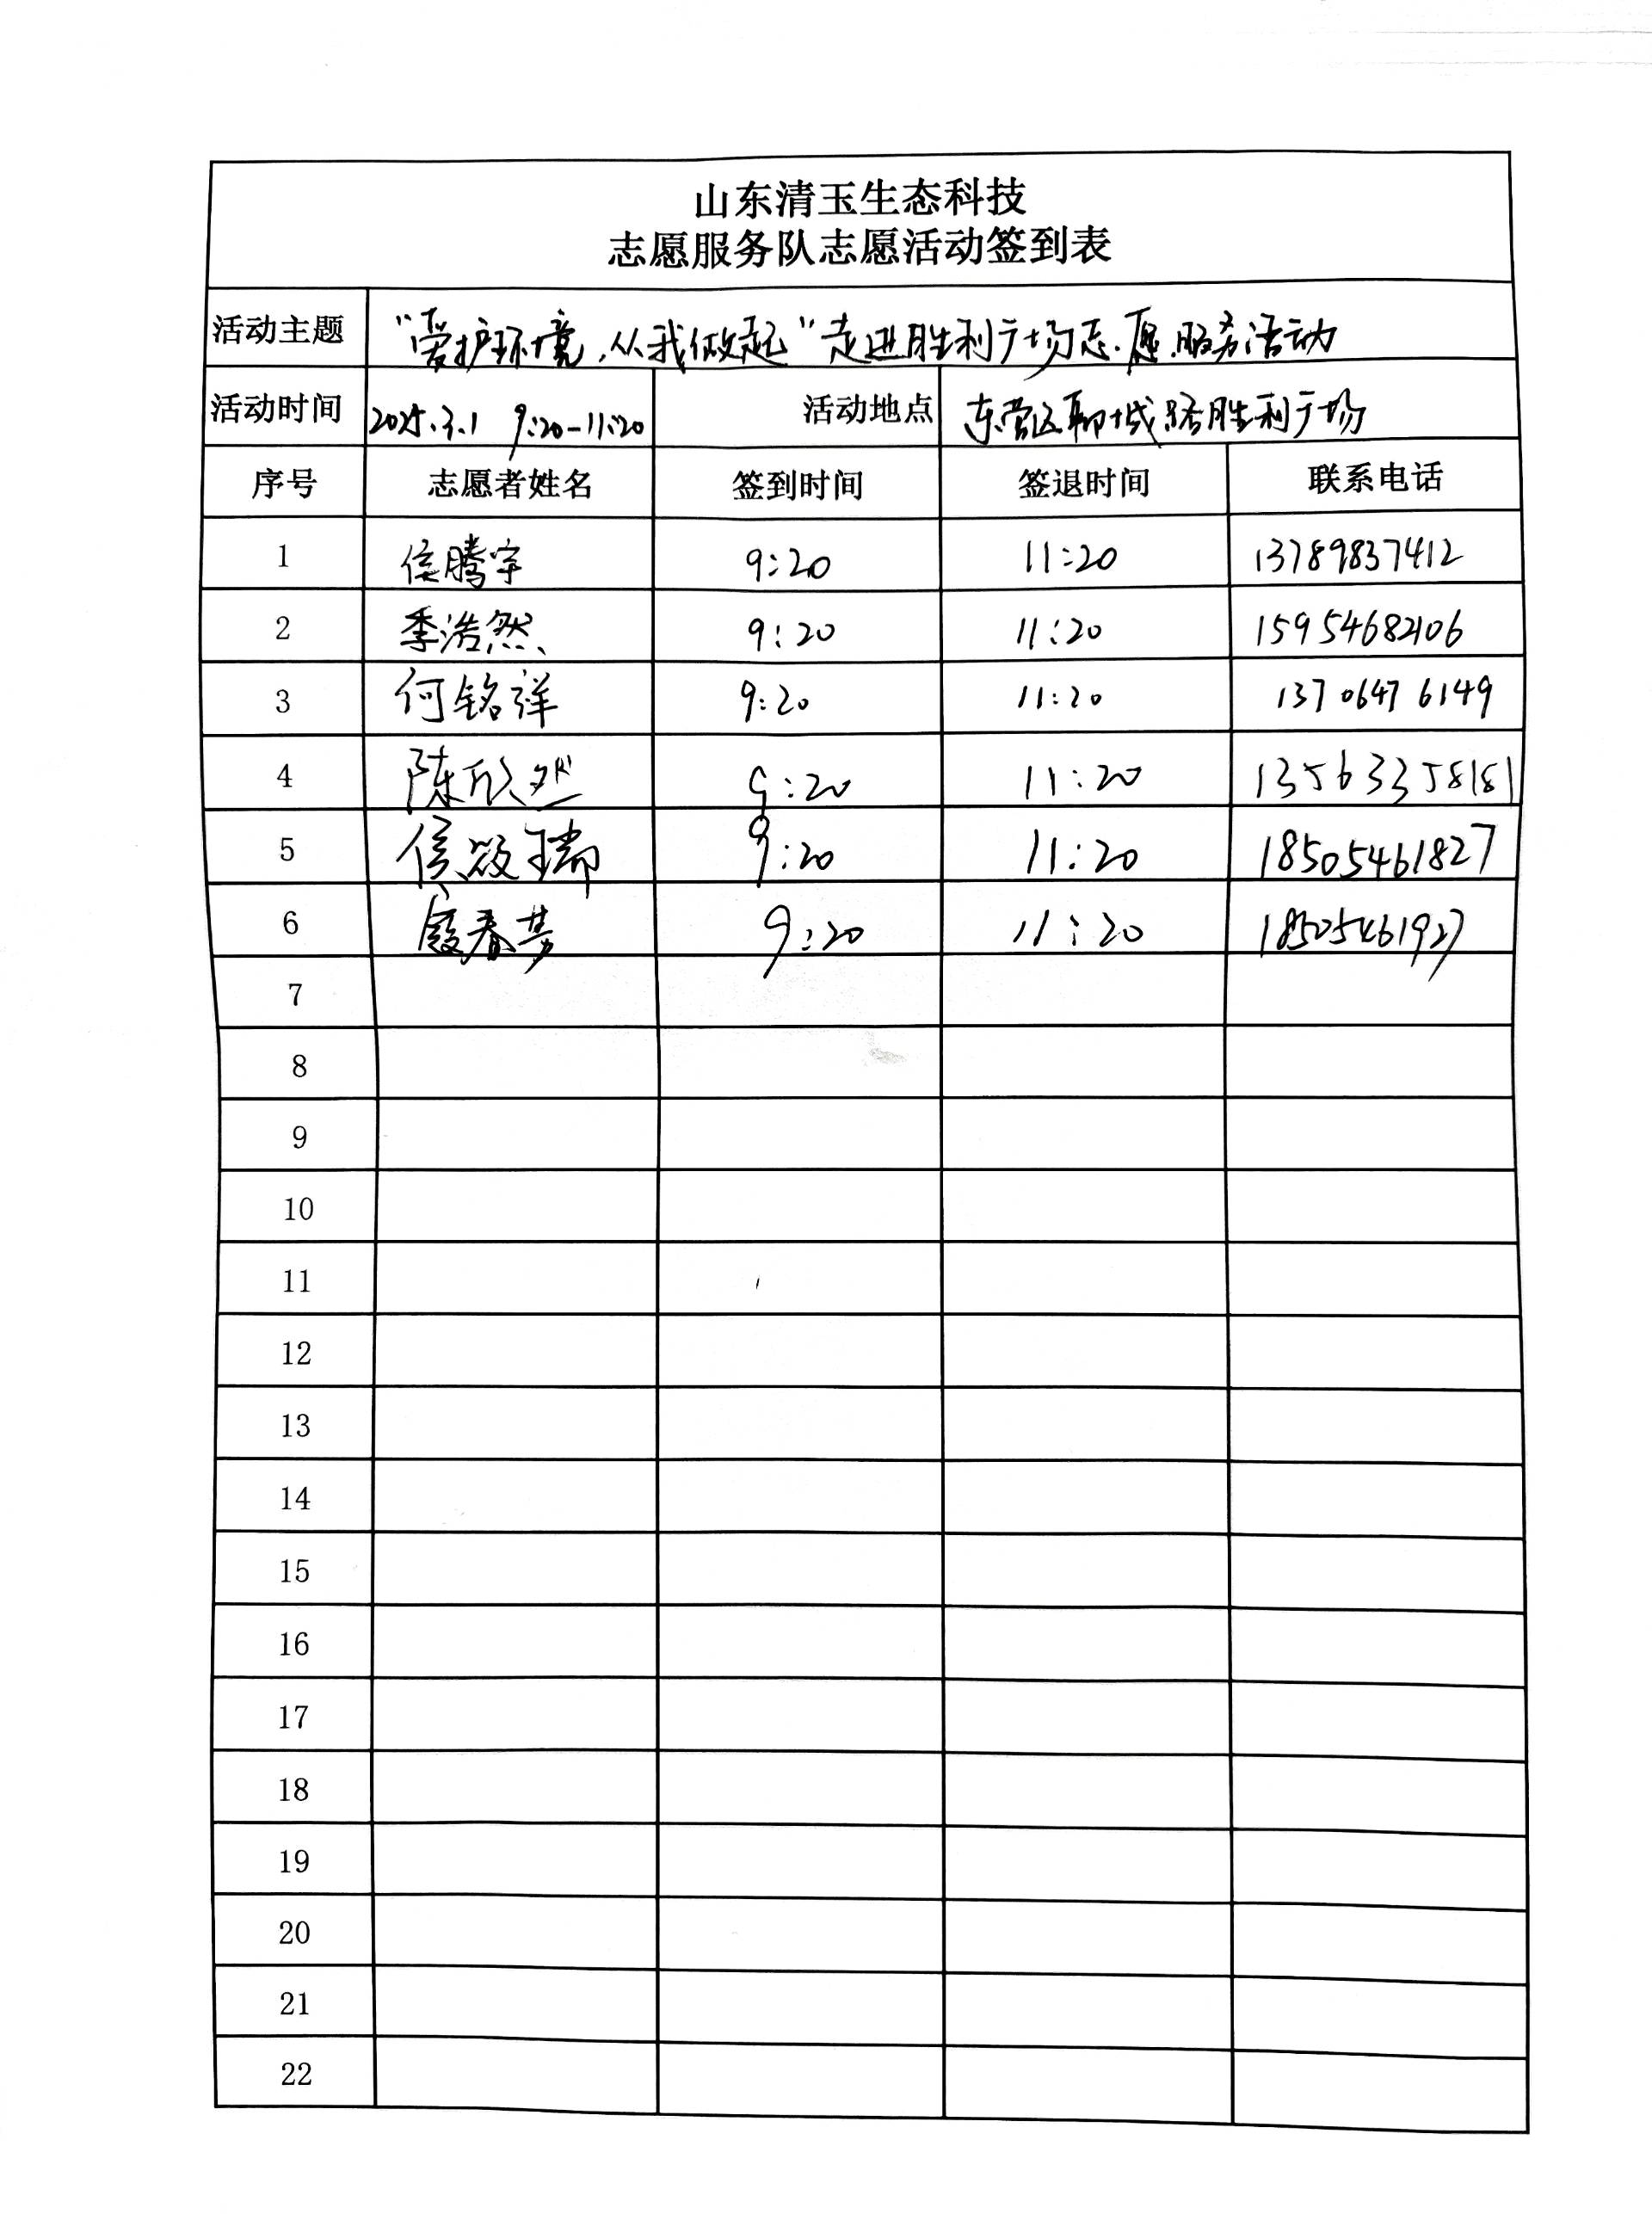 山东清玉生态科技
志愿服务队志愿活动签到表
活动主题 “爱护环境,从我做起”走进胜利广场志愿服务活动
活动时间 2025.3.1 9:20-11:20 活动地点 东营区聊城路胜利广场
序号 志愿者姓名 签到时间 签退时间 联系电话
1 侯腾宇 9:20 11:20 13789837412
2 季浩然 9:20 11:20 15954682106
3 何铭祥 9:20 11:20 13706476149
4 陈欣然 9:20 11:20 13563358181
5 侯筱瑞 9:20 11:20 18505461827
6 春梦 9:20 11:20 18505461927
7
8
9
10
11
12
13
14
15
16
17
18
19
20
21
22